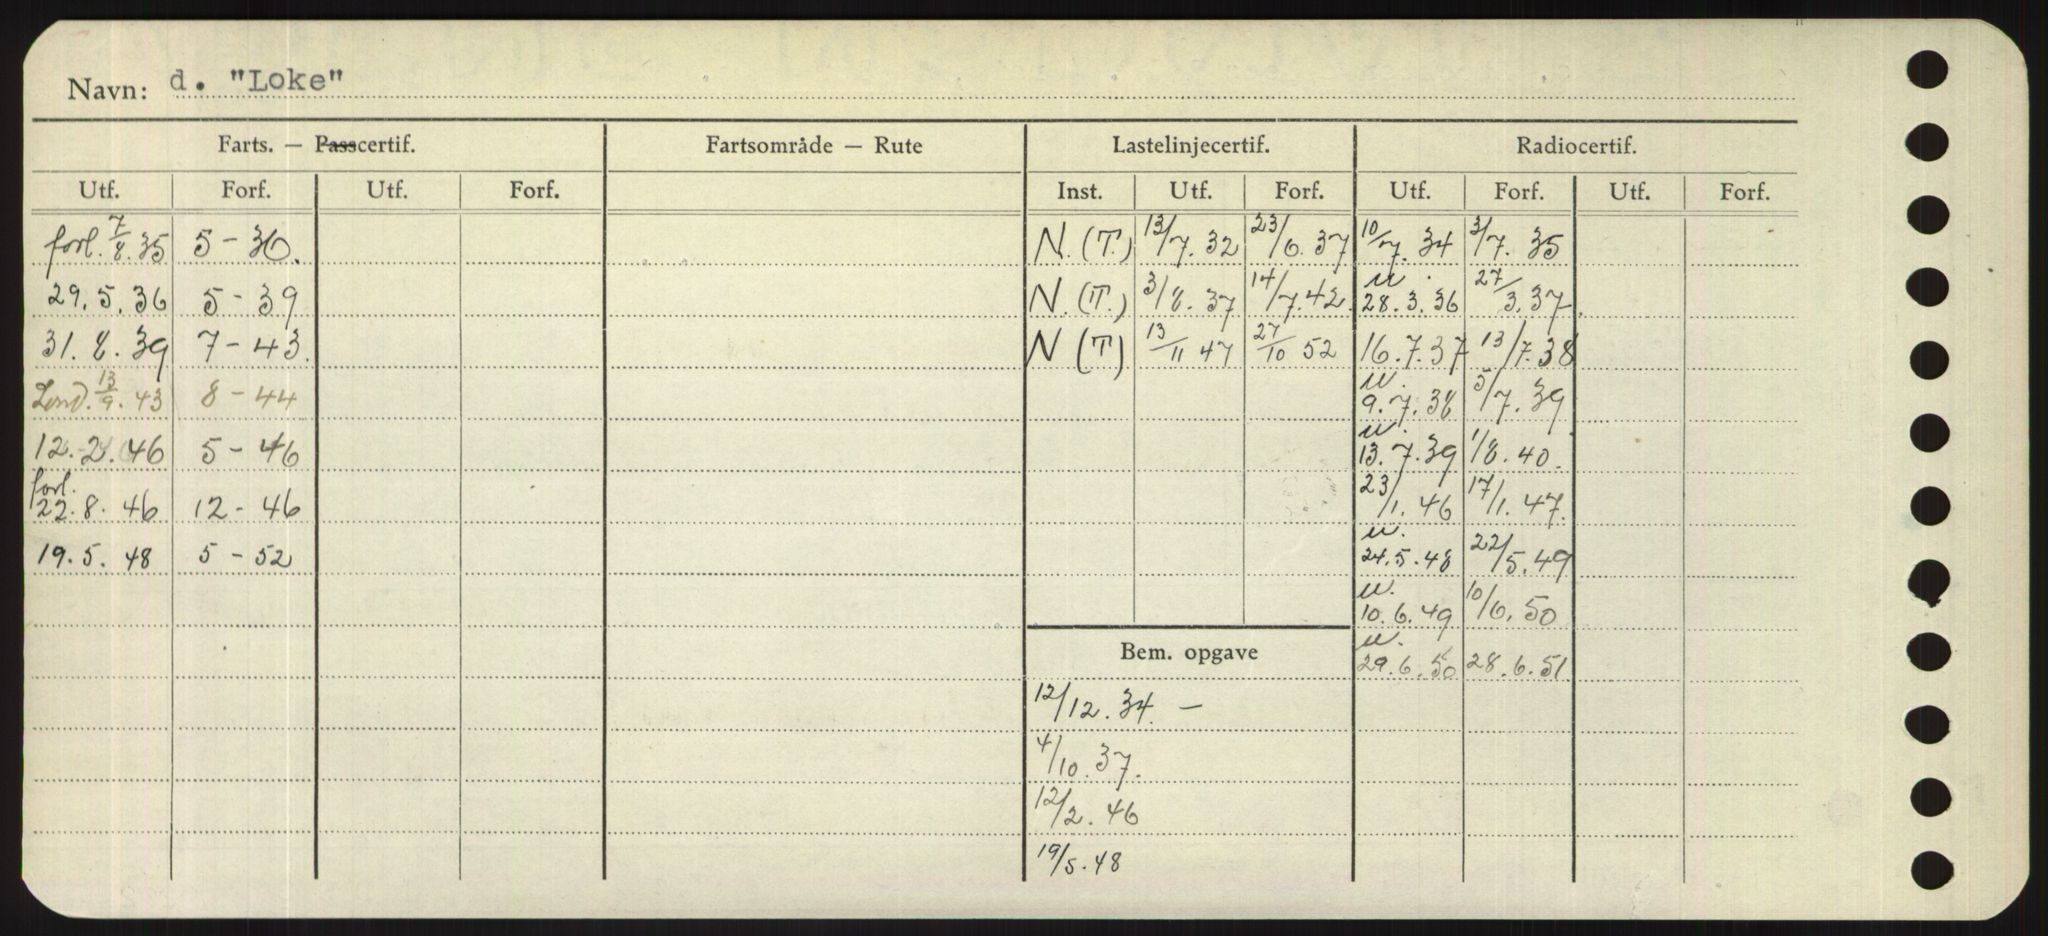 Navn: d. "Loke"
Farts. — Passcertif. Fartsområde — Rute Lastelinjecertif. Radiocertif.
Utf. Forf. Utf. Forf. Inst. Utf. Forf. Utf. Forf. Utf. Forf.
forl. 7/8. 35 5 - 36. N. (T.) 13/7. 32 23/6. 37 10/7. 34 3/7. 35
29. 5. 36 5 - 39 N. (T.) 3/8. 37 14/7. 42. u. 28. 3. 36 27/3. 37
31. 8. 39 7 - 43. N (T) 13/11 47 27/10 52 16. 7. 37 13/7. 38
Lond. 13/9. 43 8 - 44 u. 9. 7. 38 5/7. 39
12. 2. 46 5 - 46 u. 13. 7. 39 1/8. 40.
forl. 22. 8. 46 12 - 46 23/1. 46 17/1. 47.
19. 5. 48 5 - 52 u. 24. 5. 48 22/5. 49
u. 10. 6. 49 10/6. 50
Bem. opgave u. 29. 6. 50 28. 6. 51
12/12. 34. —
4/10. 37.
12/2. 46
19/5. 48